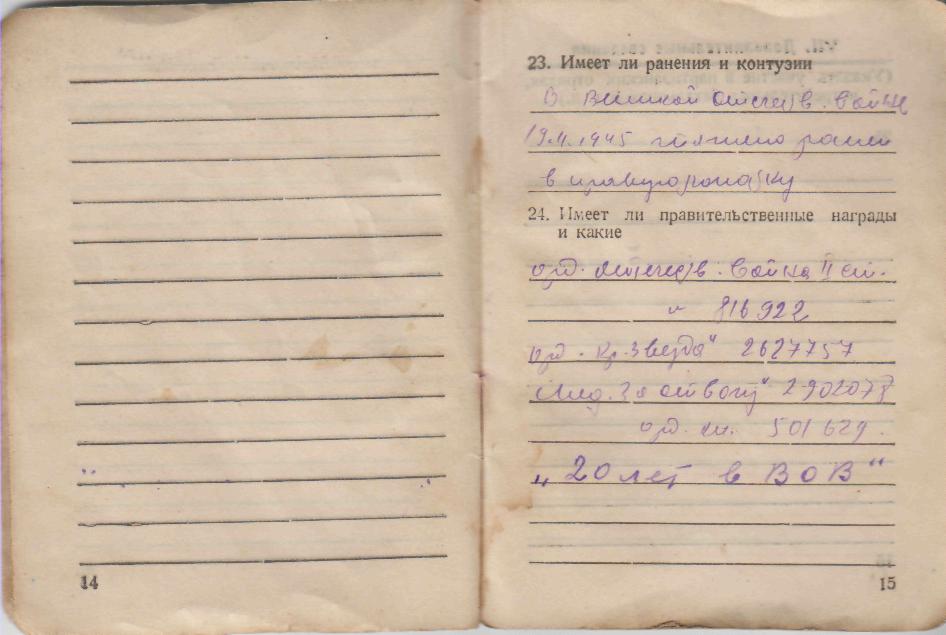 14
23. Имеет ли ранения и контузии
В Великой Отечеств. войне
19.4.1945 тяжело ранен
в правую
24. Имеет ли правительственные награды
и какие
орд. Отечеств. война II ст.
816922
орд. „Кр. Звезда“ 2627757
Мед. „За отвагу“ 2902078
орд. кн. 501629.
„20 лет в ВОВ“
15